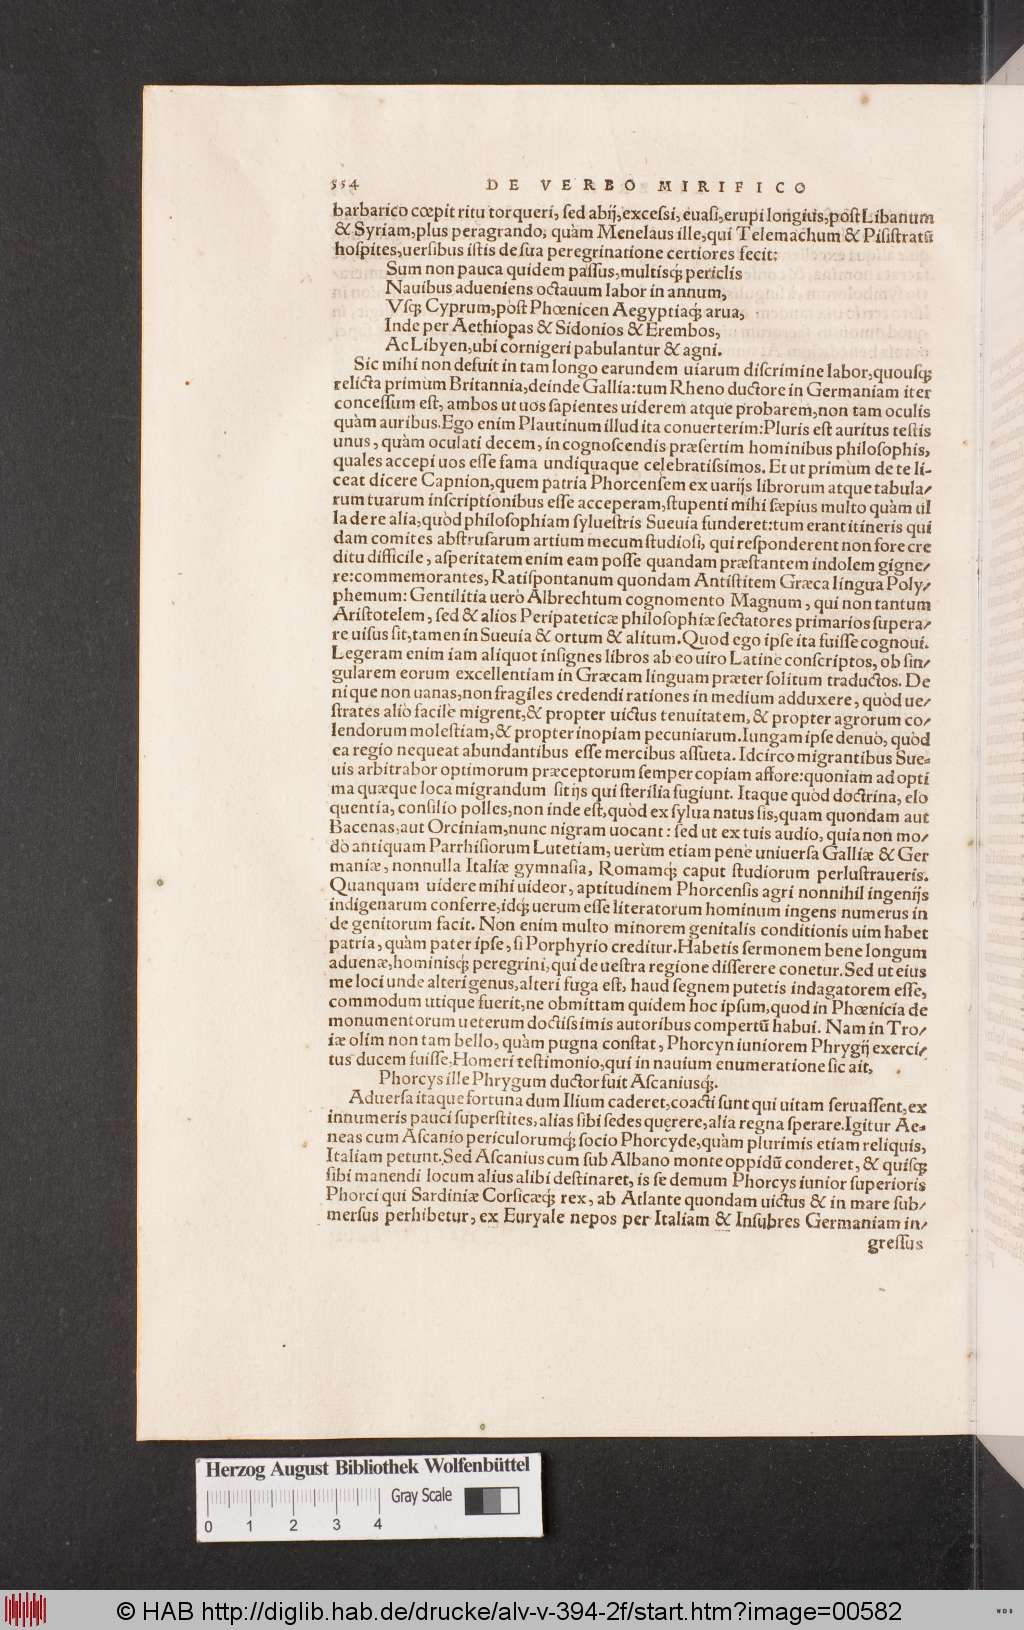 554 DE VERBO MIRIFICO
barbarico cœpit ritu torqueri, ſed abij, exceſsi, euaſi, erupi longius, pòſt Libanum
& Syriam, plus peragrando, quàm Menelaus ille, qui Telemachum & Piſiſtratũ
hoſpites, uerſibus iſtis de ſua peregrinatione certiores fecit:
Sum non pauca quidem paſſus, multisq́; periclis
Nauibus adueniens octauum labor in annum,
Vſq; Cyprum, pòſt Phœnicen Aegyptiaq́; arua,
Inde per Aethiopas & Sidonios & Erembos,
Ac Libyen, ubi cornigeri pabulantur & agni.
Sic mihi non defuit in tam longo earundem uiarum diſcrimine labor, quouſq;
relicta primùm Britannia, deinde Gallia: tum Rheno ductore in Germaniam iter
conceſſum eſt, ambos ut uos ſapientes uiderem atque probarem, non tam oculis
quàm auribus. Ego enim Plautinum illud ita conuerterim: Pluris eſt auritus teſtis
unus, quàm oculati decem, in cognoſcendis præſertim hominibus philoſophis,
quales accepi uos eſſe fama undiquaque celebratiſsimos. Et ut primùm de te li-
ceat dicere Capnion, quem patria Phorcenſem ex uarijs librorum atque tabula/
rum tuarum inſcriptionibus eſſe acceperam, ſtupenti mihi ſæpius multo quàm ul
la de re alia, quòd philoſophiam ſylueſtris Sueuia funderet: tum erant itineris qui
dam comites abſtruſarum artium mecum ſtudioſi, qui reſponderent non fore cre
ditu difficile, aſperitatem enim eam poſſe quandam præſtantem indolem gigne/
re: commemorantes, Ratiſpontanum quondam Antiſtitem Græca lingua Poly/
phemum: Gentilitia uerò Albrechtum cognomento Magnum, qui non tantum
Ariſtotelem, ſed & alios Peripateticæ philoſophiæ ſectatores primarios ſupera/
re uiſus ſit, tamen in Sueuia & ortum & alitum. Quod ego ipſe ita fuiſſe cognoui.
Legeram enim iam aliquot inſignes libros ab eo uiro Latinè conſcriptos, ob ſin/
gularem eorum excellentiam in Græcam linguam præter ſolitum traductos. De
nique non uanas, non fragiles credendi rationes in medium adduxere, quòd ue/
ſtrates aliò facilè migrent, & propter uictus tenuitatem, & propter agrorum co/
lendorum moleſtiam, & propter inopiam pecuniarum. Iungam ipſe denuò, quòd
ea regio nequeat abundantibus eſſe mercibus aſſueta. Idcirco migrantibus Sue-
uis arbitrabor optimorum præceptorum ſemper copiam affore: quoniam ad opti
ma quæque loca migrandum ſitijs qui ſterilia fugiunt. Itaque quòd doctrina, elo
quentia, conſilio polles, non inde eſt, quòd ex ſylua natus ſis, quam quondam aut
Bacenas, aut Orciniam, nunc nigram uocant: ſed ut ex tuis audio, quia non mo/
dò antiquam Parrhiſiorum Lutetiam, uerùm etiam penè uniuerſa Galliæ & Ger
maniæ, nonnulla Italiæ gymnaſia, Romamq́; caput ſtudiorum perluſtraueris.
Quanquam uidere mihi uideor, aptitudinem Phorcenſis agri nonnihil ingenijs
indigenarum conferre, idq́; uerum eſſe literatorum hominum ingens numerus in
de genitorum facit. Non enim multo minorem genitalis conditionis uim habet
patria, quàm pater ipſe, ſi Porphyrio creditur. Habetis ſermonem bene longum
aduenæ, hominisq́; peregrini, qui de ueſtra regione diſſerere conetur. Sed ut eius
me loci unde alteri genus, alteri fuga eſt, haud ſegnem putetis indagatorem eſſe,
commodum utique fuerit, ne obmittam quidem hoc ipſum, quod in Phœnicia de
monumentorum ueterum doctiſsimis autoribus compertũ habui. Nam in Tro/
iæ olim non tam bello, quàm pugna conſtat, Phorcyn iuniorem Phrygij exerci/
tus ducem fuiſſe, Homeri teſtimonio, qui in nauium enumeratione ſic ait,
Phorcys ille Phrygum ductor fuit Aſcaniusq́;.
Aduerſa itaque fortuna dum Ilium caderet, coacti ſunt qui uitam ſeruaſſent, ex
innumeris pauci ſuperſtites, alias ſibi ſedes quęrere, alia regna ſperare. Igitur Ae-
neas cum Aſcanio periculorumq́; ſocio Phorcyde, quàm plurimis etiam reliquis,
Italiam petunt. Sed Aſcanius cum ſub Albano monte oppidũ conderet, & quiſq;
ſibi manendi locum alius alibi deſtinaret, is ſe demum Phorcys iunior ſuperioris
Phorci qui Sardiniæ Corſicæq́; rex, ab Atlante quondam uictus & in mare ſub/
merſus perhibetur, ex Euryale nepos per Italiam & Inſubres Germaniam in/
greſſus
Herzog August Bibliothek Wolfenbüttel
Gray Scale
0 1 2 3 4
© HAB http://diglib.hab.de/drucke/alv-v-394-2f/start.htm?image=00582